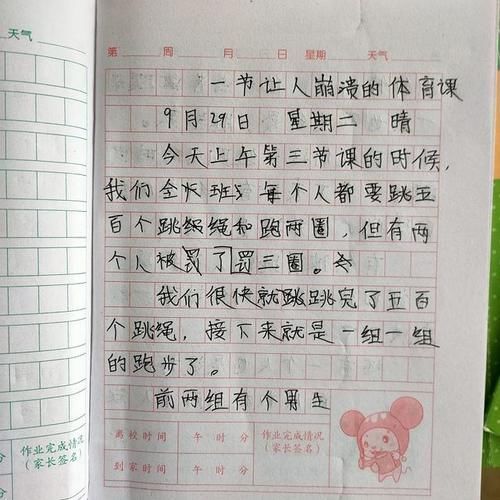 天气
第 周 月 日 星期 天气
一节让人崩溃的体育课
9月29日 星期二 晴
今天上午第三节课的时候,
我们全班 每个人都要跳五
百个跳绳和跑两圈,但有两
个人被罚了罚三圈。
我们很快就跳跳完了五百
个跳绳,接下来就是一组一组
的跑步了。
前两组有个男生
离校时间 午 时 分 作业完成情况
(家长签名)
到家时间 午 时 分
作业完成情况
(家长签名)
分
分